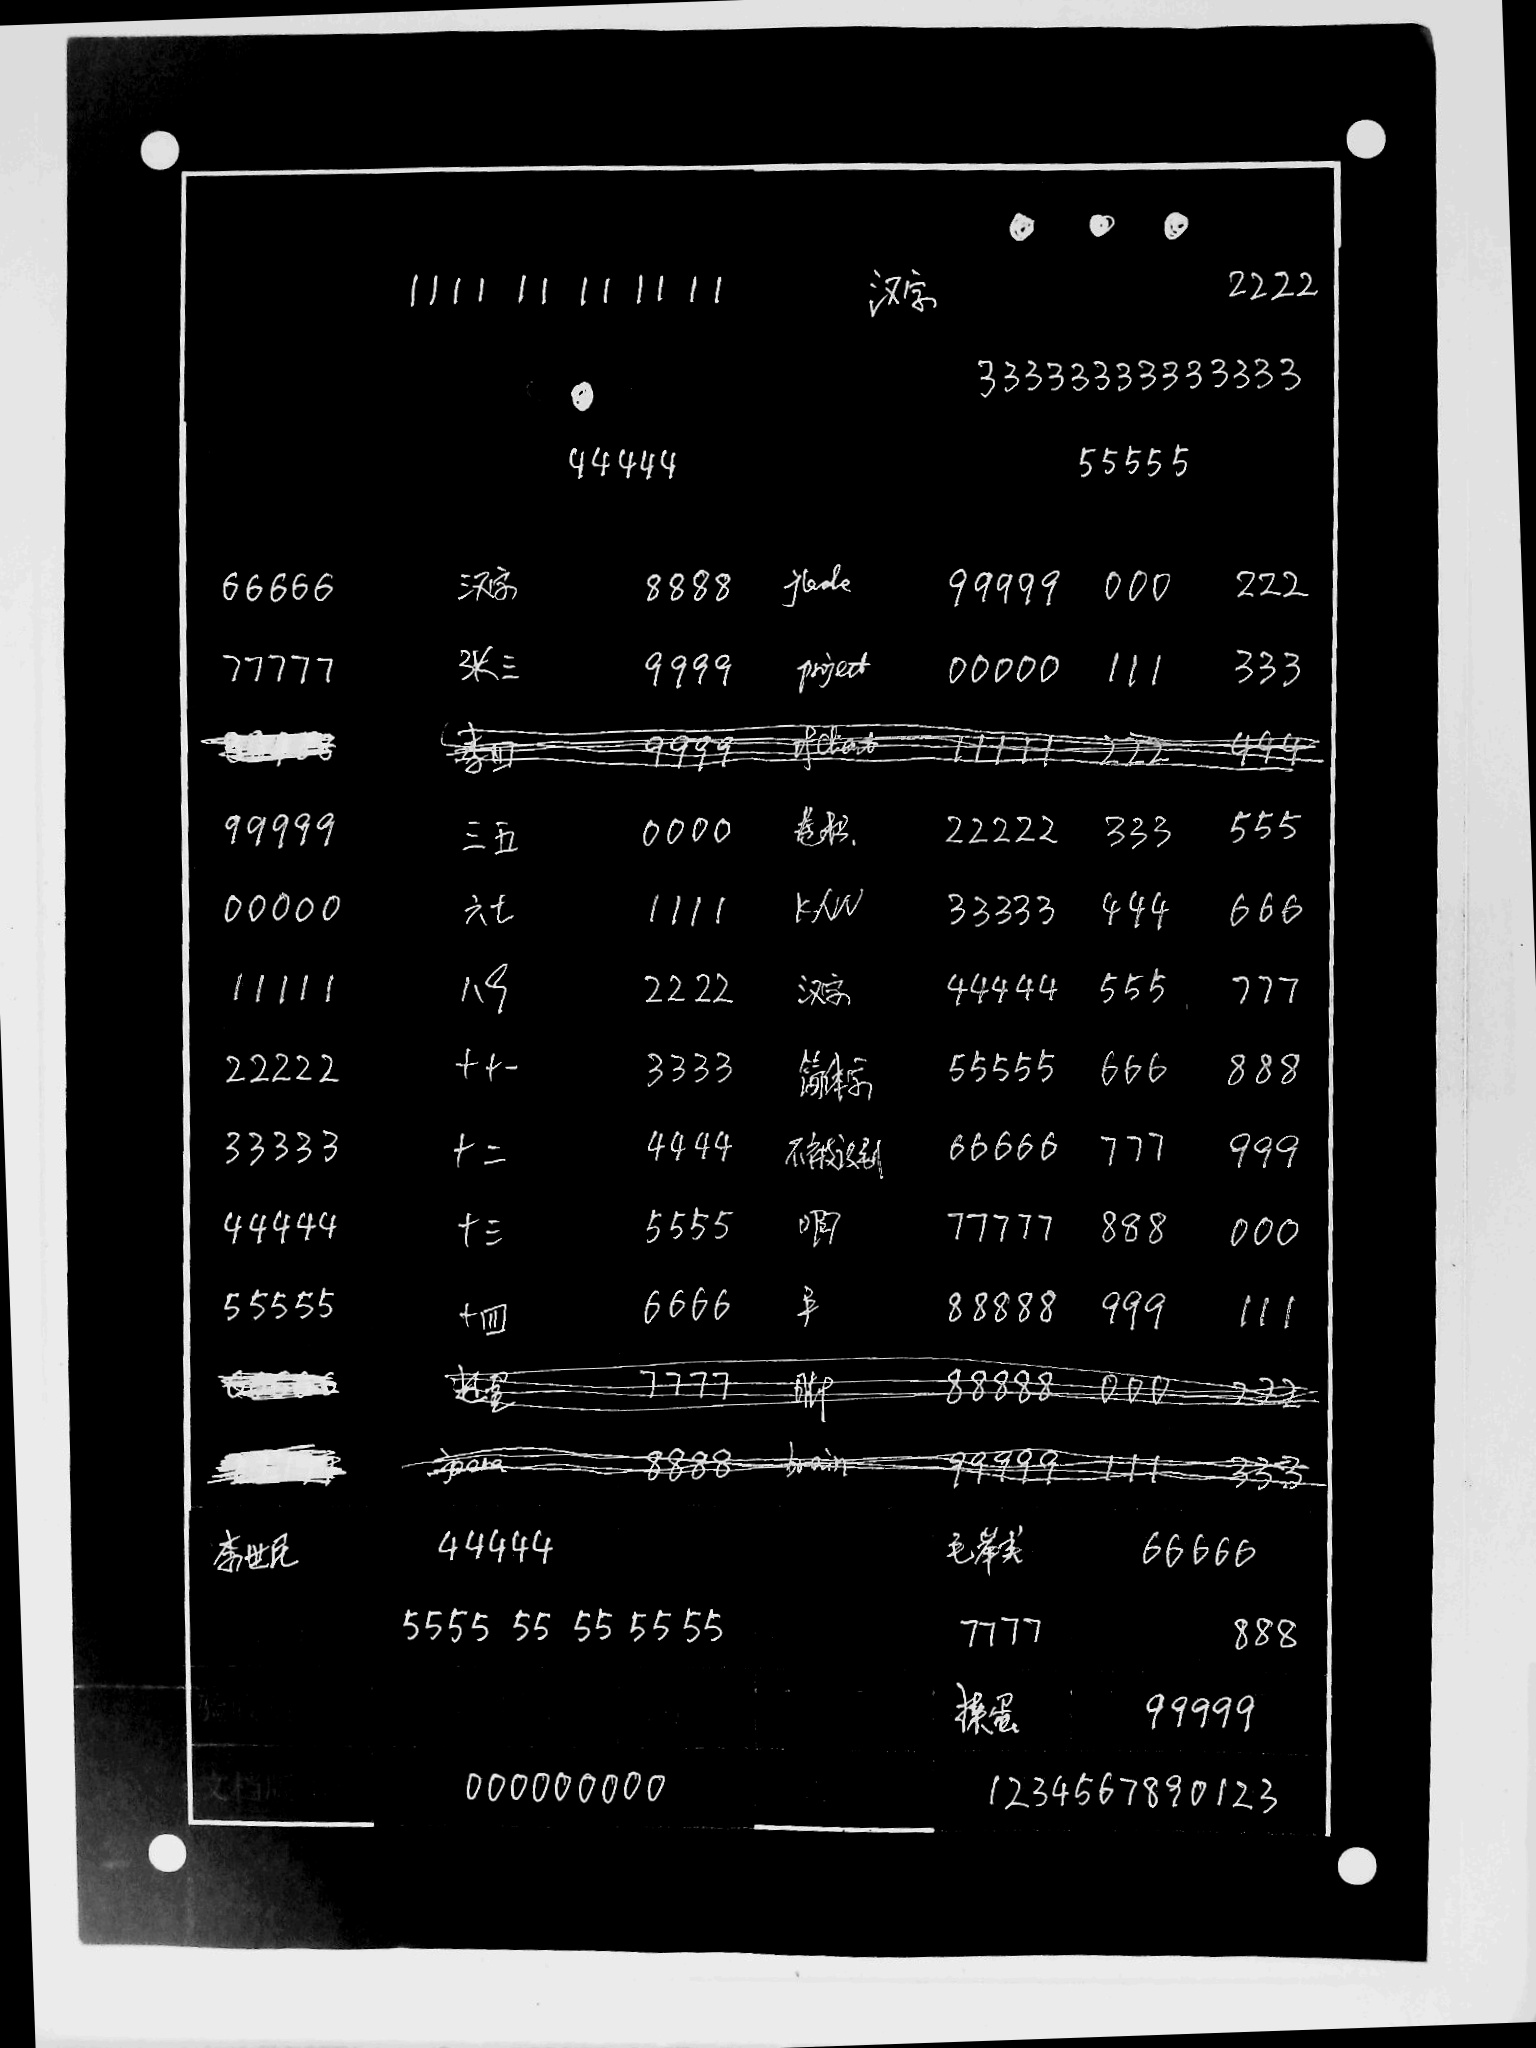 1111 11 11 11 11 汉字 2222
33333333333333
44444 55555
66666 汉字 8888 99999 000 222
77777 张三 9999 project 00000 111 333
李四 9999 11111 222 444
99999 三五 0000 22222 333 555
00000 六七 1111 33333 444 666
11111 八 2222 汉字 44444 555 777
22222 十十一 3333 简体字 55555 666 888
33333 十二 4444 66666 777 999
44444 十三 5555 77777 888 000
55555 十四 6666 88888 999 111
7777 88888 000 222
8888 brain 99999 111 333
李世民 44444 66666
5555 55 55 55 55 7777 888
99999
000000000 1234567890123